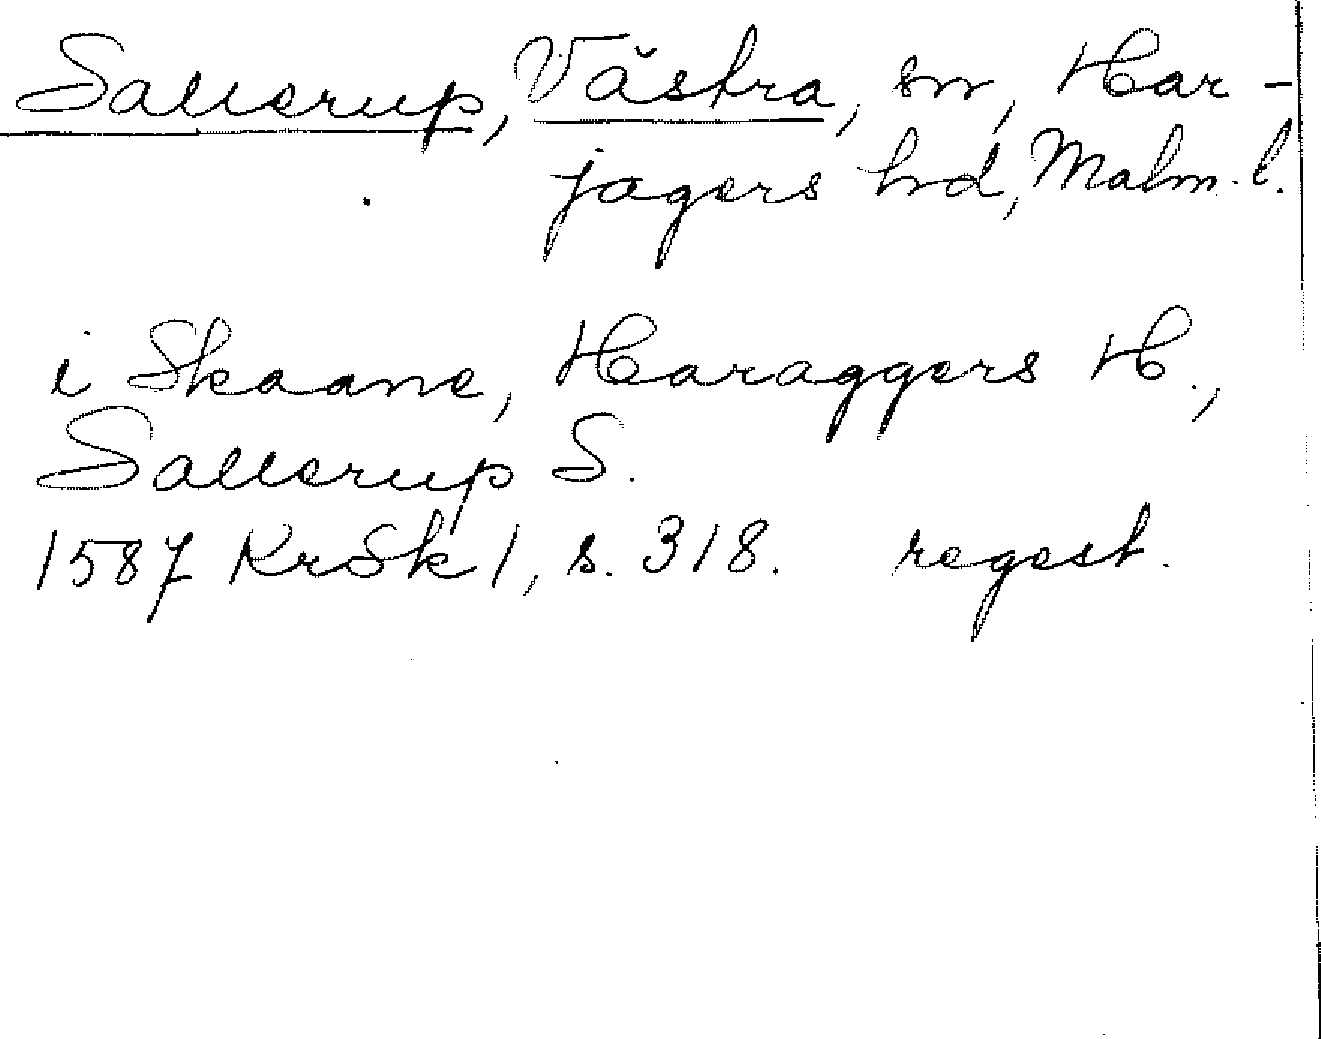 Sallerup, Västra, sn, Har-
jagers hd, Malm. l.
i Skaane, Haraggers H.,
Sallerup S.
1587 KrSk 1, s. 318. regest.